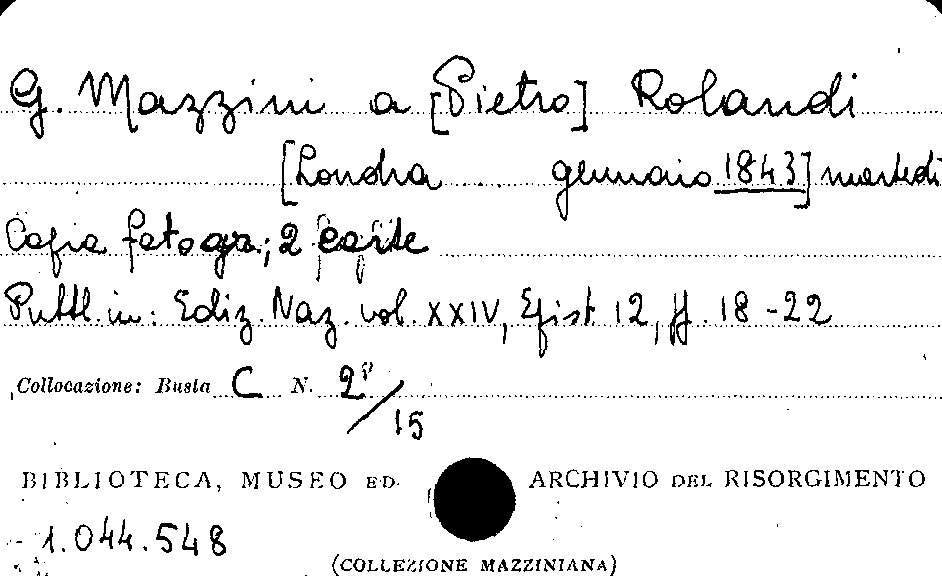 G. Mazzini a [Pietro] Rolandi
[Londra ... gennaio 1843] martedì
Copia fotogr.; 2 carte
Pubbl. in: Ediz. Naz. vol. XXIV, Epist. 12, pp. 18-22
Collocazione: Busta C N. 2°/15
BIBLIOTECA, MUSEO ED ARCHIVIO DEL RISORGIMENTO
1.044.548
(COLLEZIONE MAZZINIANA)